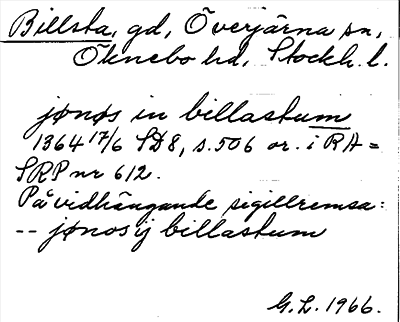 Billsta, gd, Överjärna sn,
Öknebo hd, Stockh. l.
jønøs in billastum
1364 17/6 SD8, s. 506 or. i RA =
SRP nr 612.
På vidhängande sigillremsa:
-- jønosij billastum
G.L. 1966.